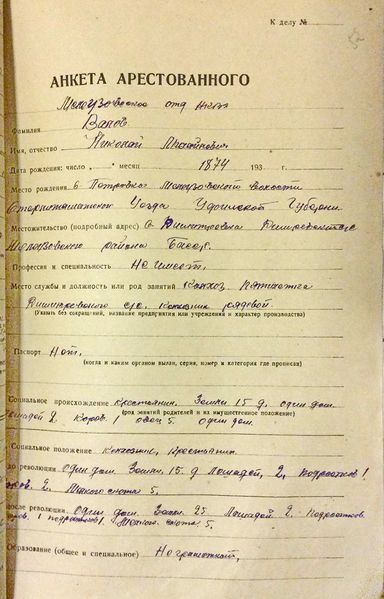 К делу №
52
АНКЕТА АРЕСТОВАННОГО
Мелеузовское отд
Фамилия Ванов
Имя, отчество Николай Михайлович
Дата рождения: число месяц 1874 193 г.
Место рождения в Петровка Мелеузовской волости
Стерлитамакского Уезда Уфимской Губернии
Местожительство (подробный адрес) д Дмитровка
Мелеузовского района Башсср.
Профессия и специальность Не имеет.
Место службы и должность или род занятий Колхоз Пятилетка
с/с. Колхозник рядовой
(Указать без сокращений, название предприятия или учреждения и характер производства)
Паспорт Нет.
(когда и каким органом выдан, серия, номер и категория где прописан)
Социальное происхождение крестьянин. Земли 15 д. один дом.
Лошадей 2. Коров. 1 овец 5. один дом.
(род занятий родителей и их имущественное положение)
Социальное положение Колхозник, Крестьянин.
до революции один дом. Земли. 15 д Лошадей, 2, подростков 1
коров. 2. Мелкого скота 5.
после революции один дом. Земли. 25 Лошадей 2. подростков.
коров. 1 подростков 1. Мелкого скота 5.
Образование (общее и специальное) Неграмотный,